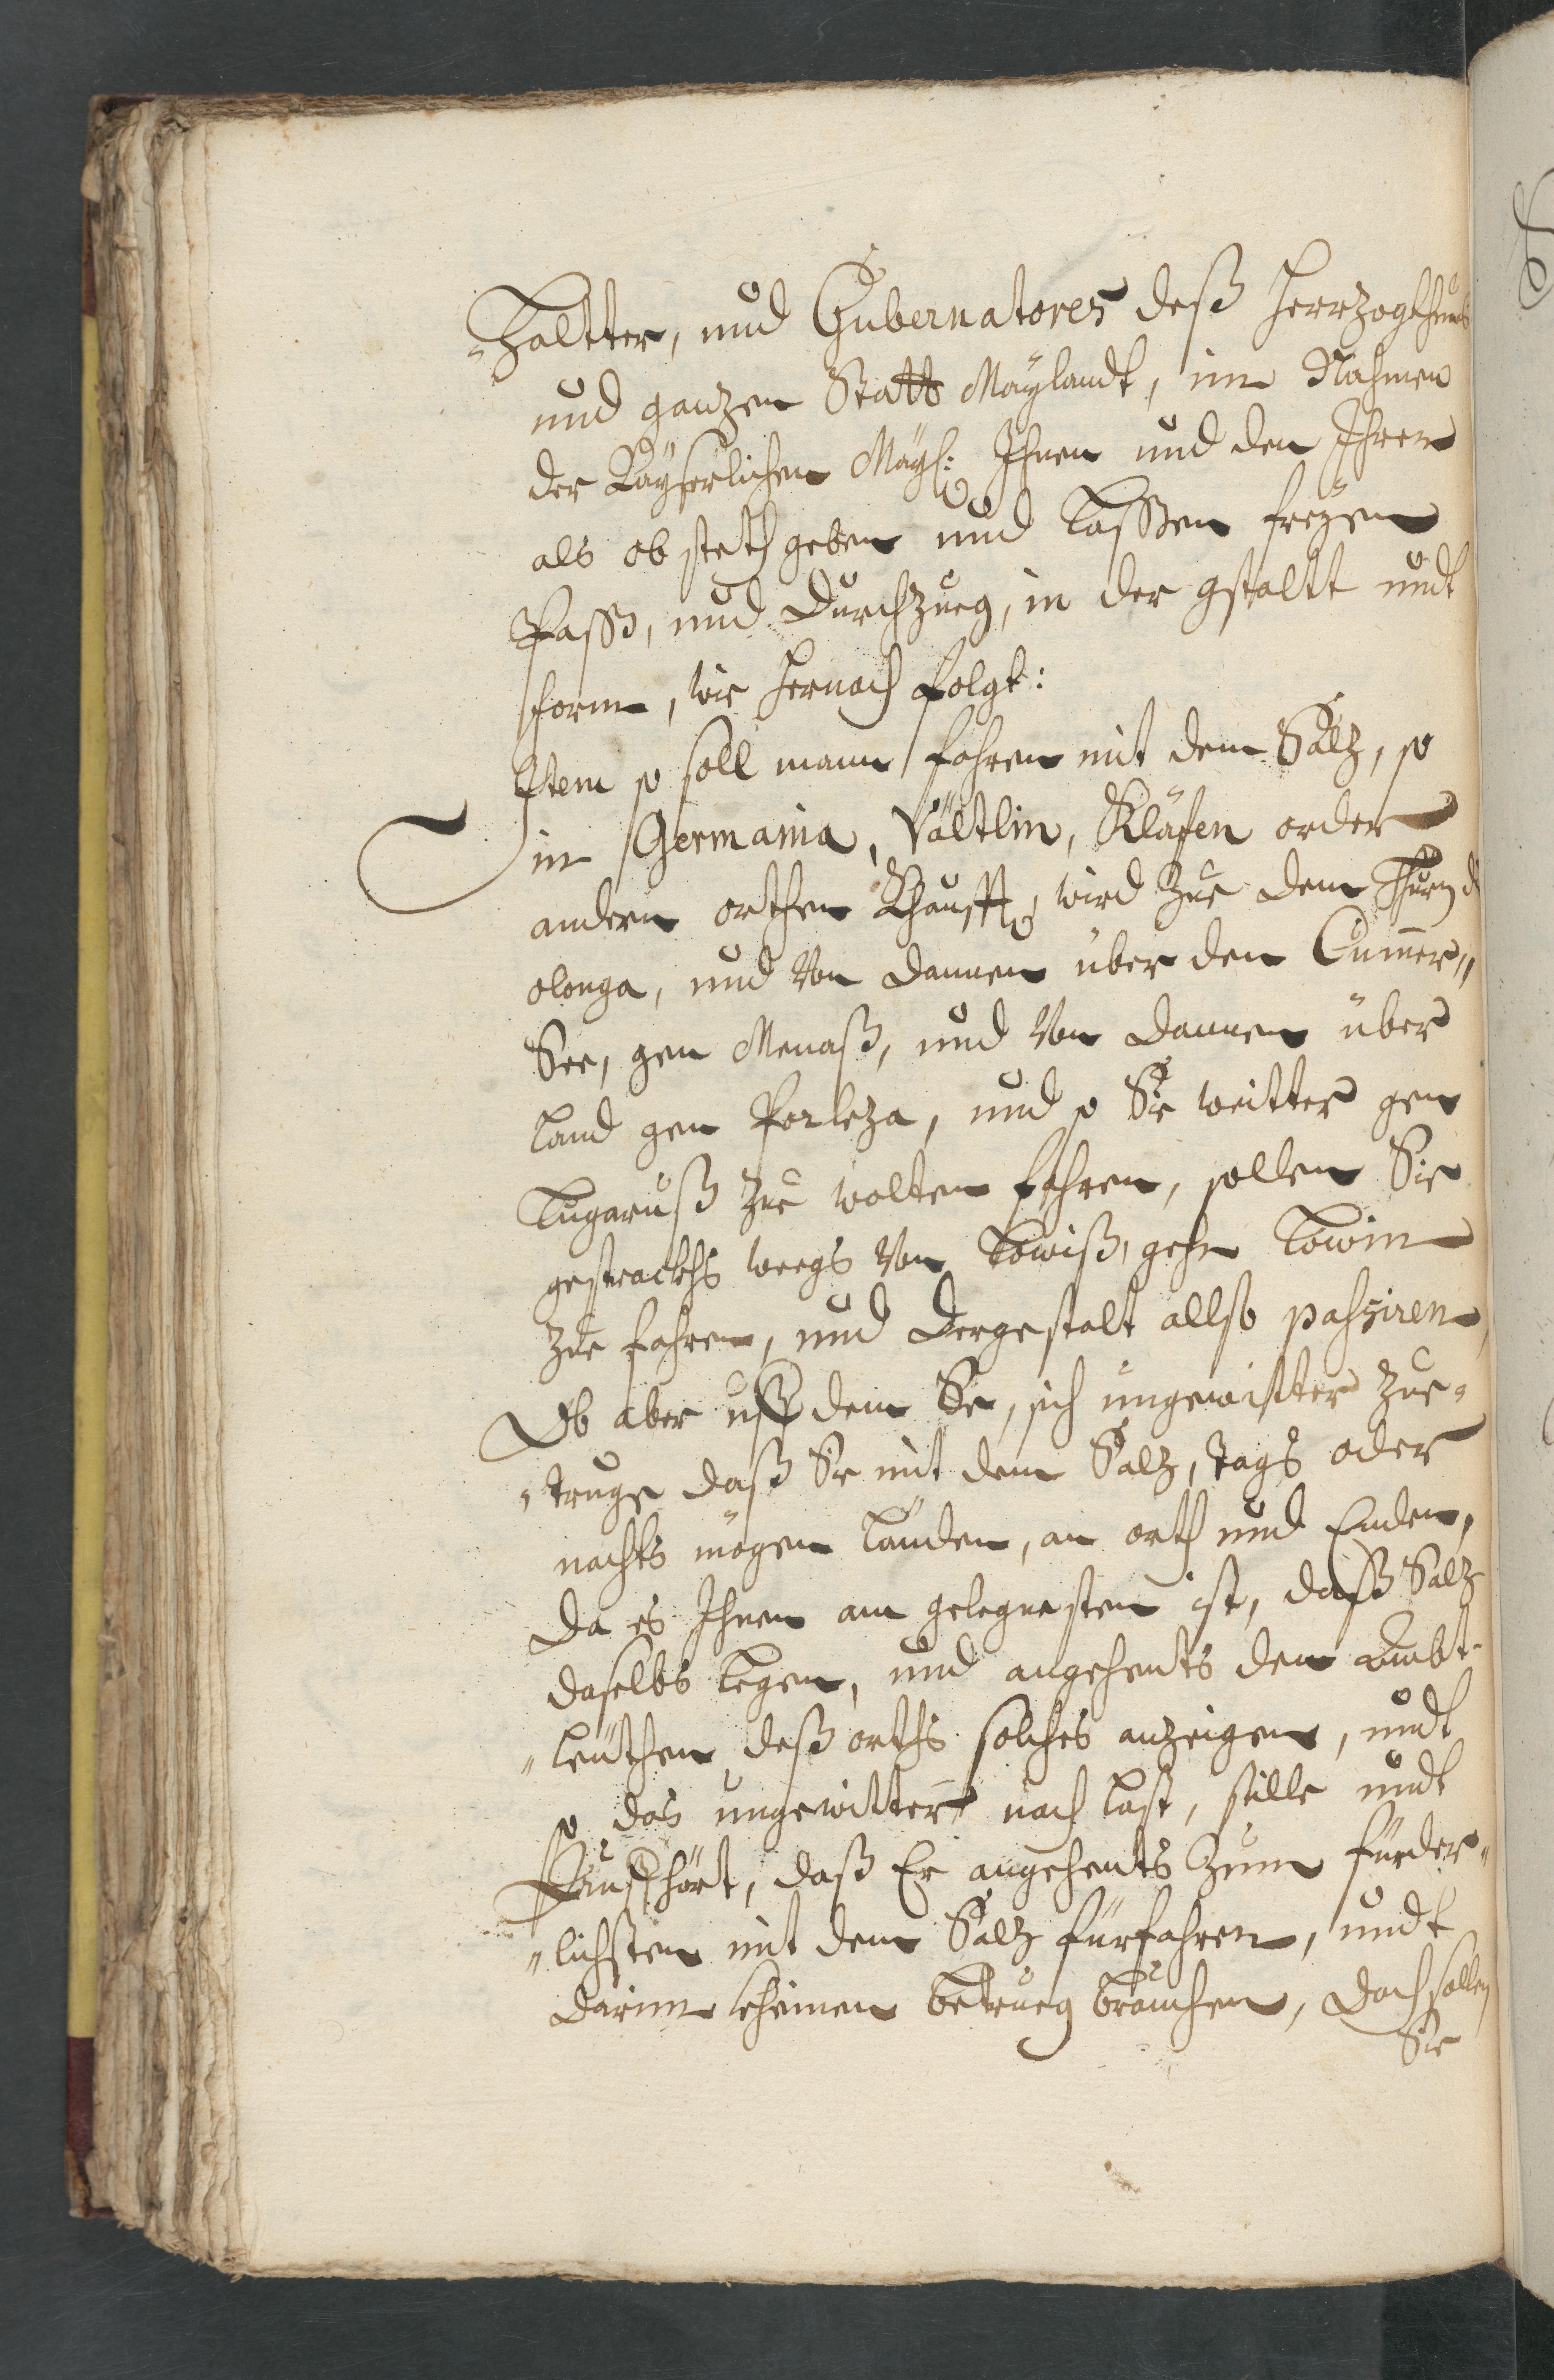 -haltter, und Gubernatores deß Herrzogthumbs
und ganzen Statts Maylandt, im Nahmen
der Kayserlichen Mayt: Ihnen und den Ihren
als ob steth geben und Lassen freyen
Pass, und Durchzueg, in der gstaltt undt
form, wie hernach folgt:
Item so soll mann fahren mit dem Salz, so
in Germania, Vältlin, Kläfen order
andern orthen khaufft, wird zue dem Thurn d
olonga, und von dannen über den Cummer„
See, gen Menaß, und von dannen über
land gen Porleza, und so Sie weitter gen
Lugaruß zue wolten fahren, sollen Sie
gestrackhs weegs von Lowiß, gehn Lowin
zue fahren, und dergestalt allso passiren,
Ob aber uff dem See, sich ungewitter zue-
-truge daß Sie mit dem Salz, tags oder
nachts mögen länden, an orth und Enden,
da es Ihnen am gelegnesten ist, daß Salz
daselbs legen, und angehents den Ambt-
-leüthen deß orths solches anzeigen, undt
so das ungewitter nach last, stille undt
Auffhört, daß Er angehents zum fürder-
-lichsten mit dem Salz fürfahren, undt
darinn kheinen betrueg brauchen, doch sollen
Sie